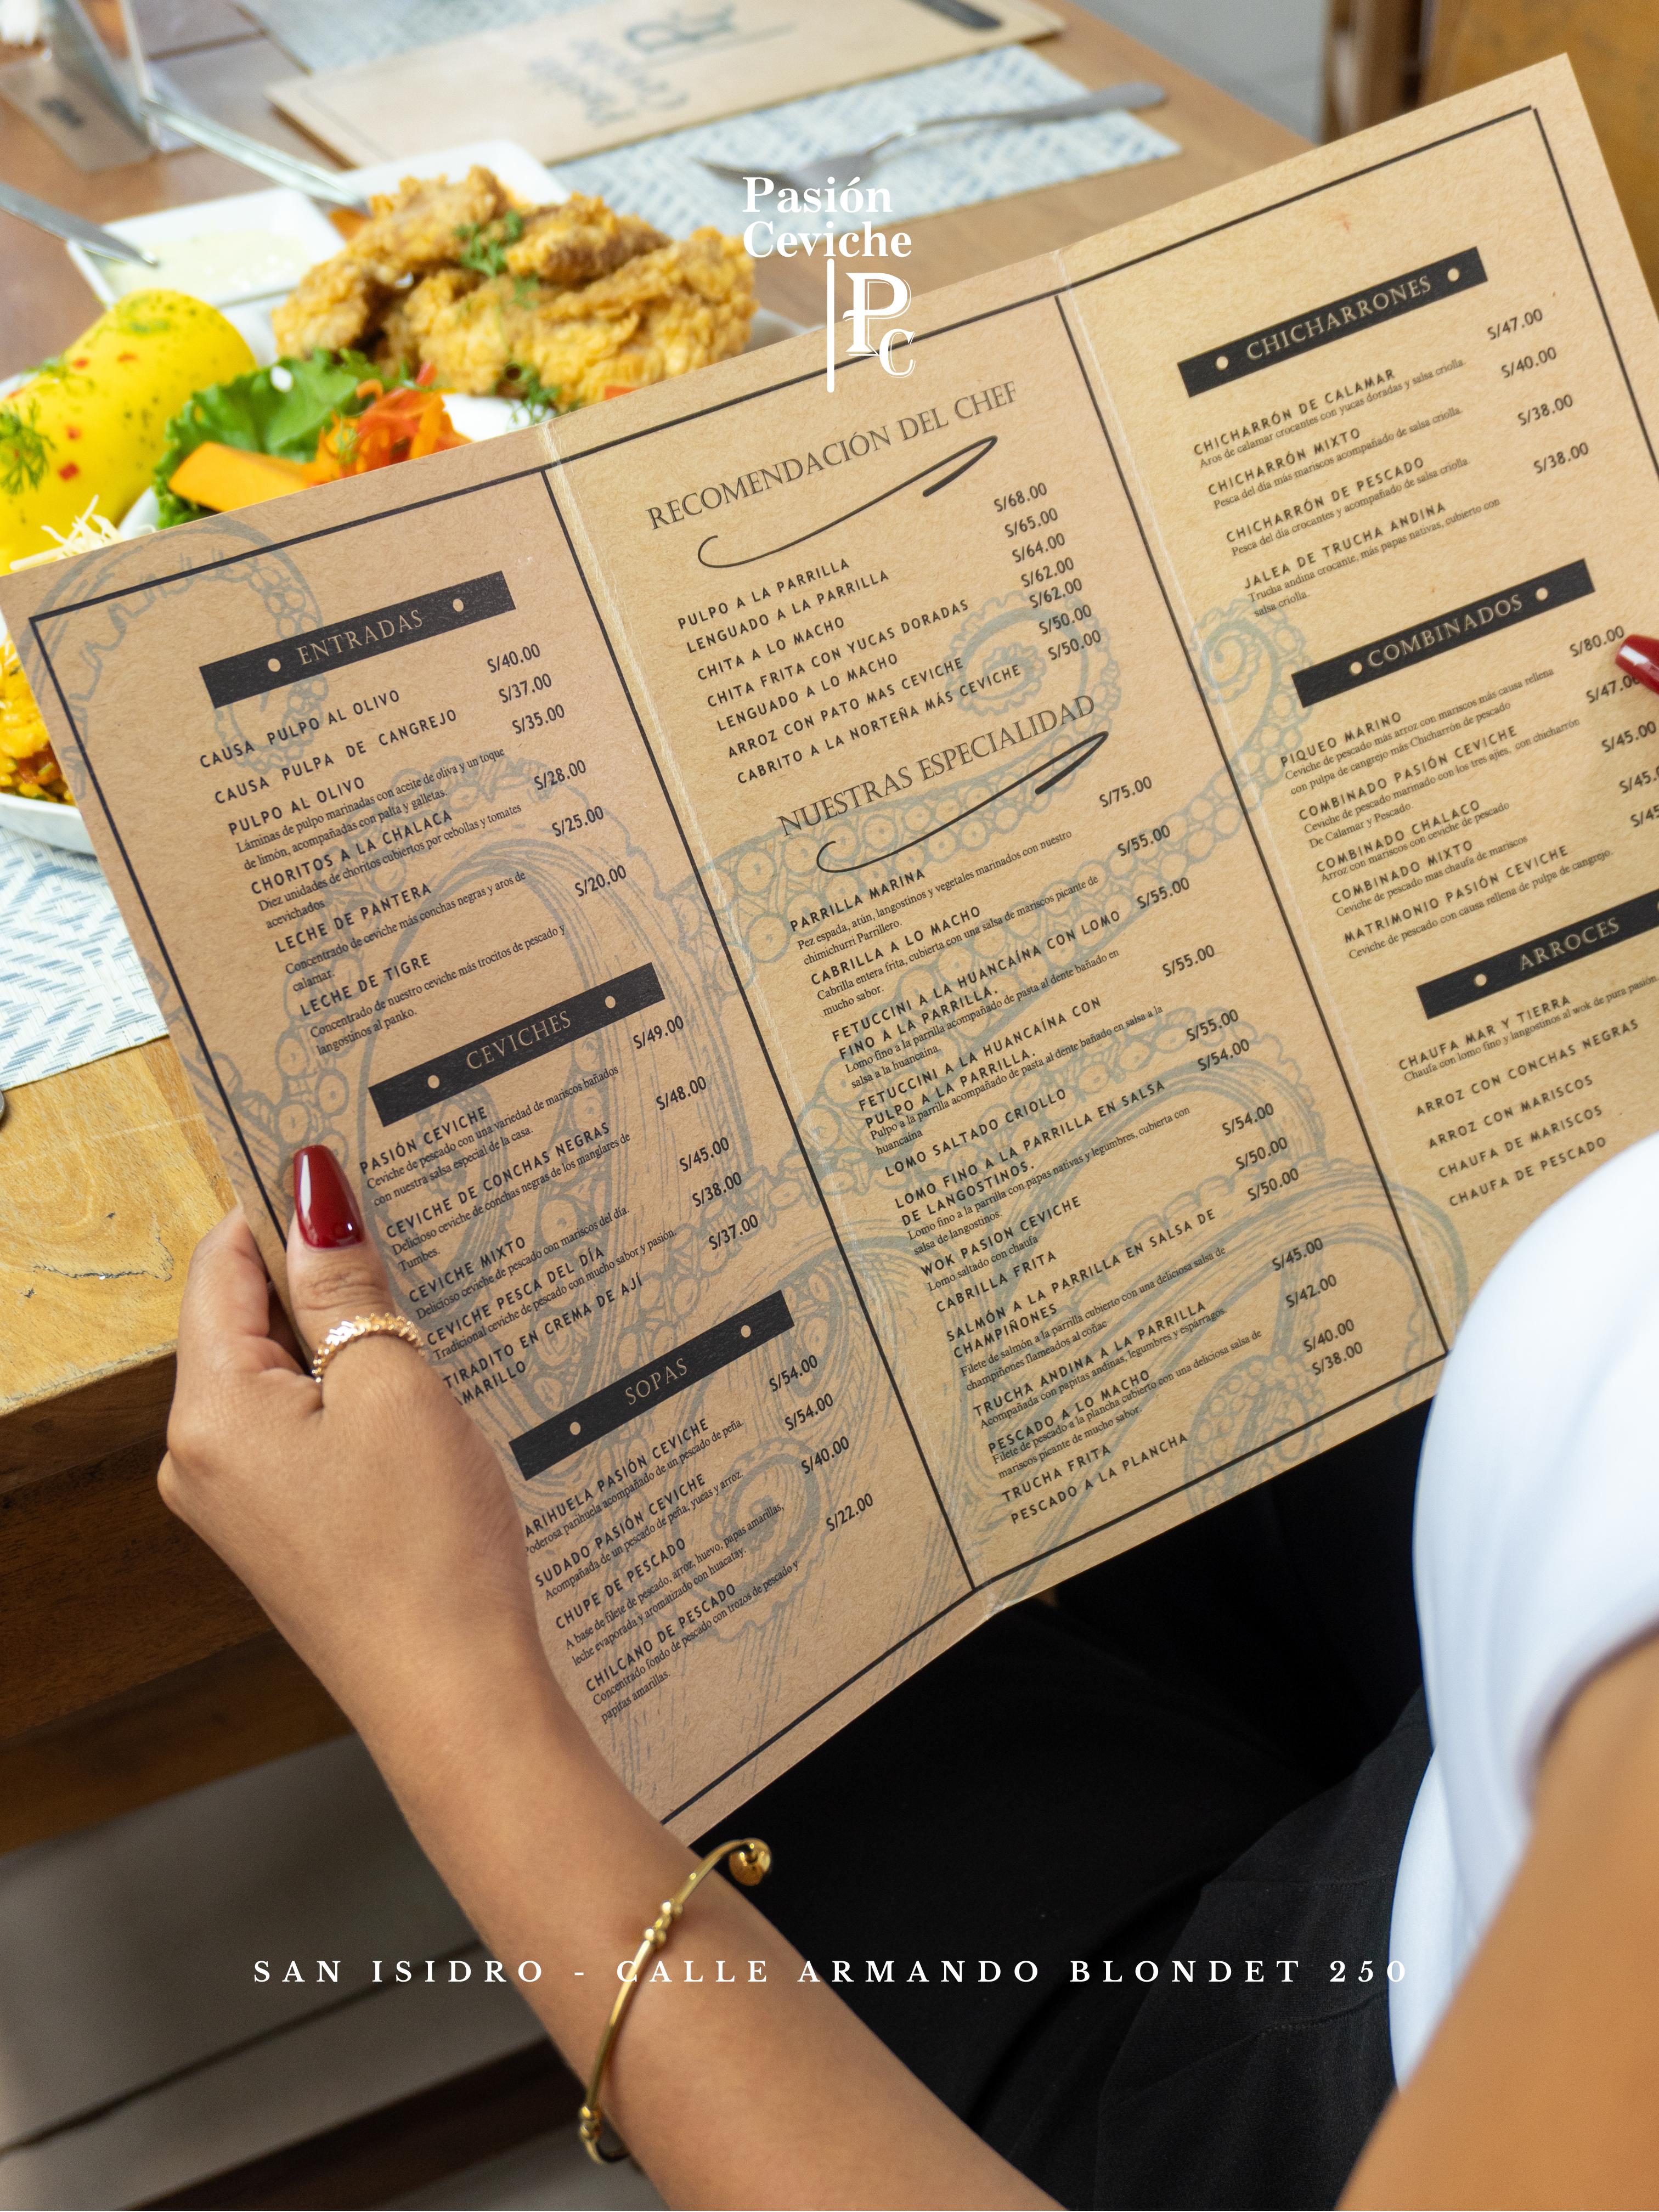 Pasión
Ceviche
PC
ENTRADAS
CAUSA PULPO AL OLIVO S/40.00
CAUSA PULPA DE CANGREJO S/37.00
PULPO AL OLIVO S/35.00
Láminas de pulpo marinadas con aceite de oliva y un toque
de limón, acompañadas con palta y galletas.
CHORITOS A LA CHALACA S/28.00
Diez unidades de choritos cubiertos por cebollas y tomates
acevichados
LECHE DE PANTERA S/25.00
Concentrado de ceviche más conchas negras y aros de
calamar.
LECHE DE TIGRE S/20.00
Concentrado de nuestro ceviche más trocitos de pescado y
langostinos al panko.
CEVICHES
PASIÓN CEVICHE S/49.00
Ceviche de pescado con una variedad de mariscos bañados
con nuestra salsa especial de la casa.
CEVICHE DE CONCHAS NEGRAS S/48.00
Delicioso ceviche de conchas negras de los manglares de
Tumbes.
CEVICHE MIXTO S/45.00
Delicioso ceviche de pescado con mariscos del día.
CEVICHE PESCA DEL DÍA S/38.00
Tradicional ceviche de pescado con mucho sabor y pasión.
TIRADITO EN CREMA DE AJÍ S/37.00
AMARILLO
SOPAS
ARIHUELA PASIÓN CEVICHE S/54.00
Poderosa parihuela acompañado de un pescado de peña.
SUDADO PASIÓN CEVICHE S/54.00
Acompañada de un pescado de peña, yucas y arroz.
CHUPE DE PESCADO S/40.00
A base de filete de pescado, arroz, huevo, papas amarillas,
leche evaporada y aromatizado con huacatay.
CHILCANO DE PESCADO S/22.00
Concentrado fondo de pescado con trozos de pescado y
papitas amarillas.
RECOMENDACIÓN DEL CHEF
PULPO A LA PARRILLA S/68.00
LENGUADO A LA PARRILLA S/65.00
CHITA A LO MACHO S/64.00
CHITA FRITA CON YUCAS DORADAS S/62.00
LENGUADO A LO MACHO S/62.00
ARROZ CON PATO MAS CEVICHE S/50.00
CABRITO A LA NORTEÑA MÁS CEVICHE S/50.00
NUESTRAS ESPECIALIDAD
PARRILLA MARINA S/75.00
Pez espada, atún, langostinos y vegetales marinados con nuestro
chimichurri Parrillero.
CABRILLA A LO MACHO S/55.00
Cabrilla entera frita, cubierta con una salsa de mariscos picante de
mucho sabor.
FETUCCINI A LA HUANCAÍNA CON LOMO S/55.00
FINO A LA PARRILLA.
Lomo fino a la parrilla acompañado de pasta al dente bañado en
salsa a la huancaina.
FETUCCINI A LA HUANCAÍNA CON S/55.00
PULPO A LA PARRILLA.
Pulpo a la parrilla acompañado de pasta al dente bañado en salsa a la
huancaina
LOMO SALTADO CRIOLLO S/55.00
LOMO FINO A LA PARRILLA EN SALSA S/54.00
DE LANGOSTINOS.
Lomo fino a la parrilla con papas nativas y legumbres, cubierta con
salsa de langostinos.
WOK PASION CEVICHE S/54.00
Lomo saltado con chaufa
CABRILLA FRITA S/50.00
SALMÓN A LA PARRILLA EN SALSA DE S/50.00
CHAMPIÑONES
Filete de salmón a la parrilla cubierto con una deliciosa salsa de
champiñones flameados al coñac
TRUCHA ANDINA A LA PARRILLA S/45.00
Acompañada con papitas andinas, legumbres y espárragos.
PESCADO A LO MACHO S/42.00
Filete de pescado a la plancha cubierto con una deliciosa salsa de
mariscos picante de mucho sabor.
TRUCHA FRITA S/40.00
PESCADO A LA PLANCHA S/38.00
CHICHARRONES
CHICHARRÓN DE CALAMAR S/47.00
Aros de calamar crocantes con yucas doradas y salsa criolla.
CHICHARRÓN MIXTO S/40.00
Pesca del día más mariscos acompañado de salsa criolla.
CHICHARRÓN DE PESCADO S/38.00
Pesca del día crocantes y acompañado de salsa criolla
JALEA DE TRUCHA ANDINA S/38.00
Trucha andina crocante, más papas nativas, cubierto con
salsa criolla.
COMBINADOS
PIQUEO MARINO S/80.00
Ceviche de pescado más arroz con mariscos más causa rellena
con pulpa de cangrejo más Chicharrón de pescado
COMBINADO PASIÓN CEVICHE S/47.00
Ceviche de pescado marinado con los tres ajies, con chicharrón
De Calamar y Pescado.
COMBINADO CHALACO S/45.00
Arroz con mariscos con ceviche de pescado
COMBINADO MIXTO S/45.0
Ceviche de pescado mas chaufa de mariscos
MATRIMONIO PASIÓN CEVICHE S/45
Ceviche de pescado con causa rellena de pulpa de cangrejo.
ARROCES
CHAUFA MAR Y TIERRA
Chaufa con lomo fino y langostinos al wok de pura pasión.
ARROZ CON CONCHAS NEGRAS
ARROZ CON MARISCOS
CHAUFA DE MARISCOS
CHAUFA DE PESCADO
SAN ISIDRO - CALLE ARMANDO BLONDET 250